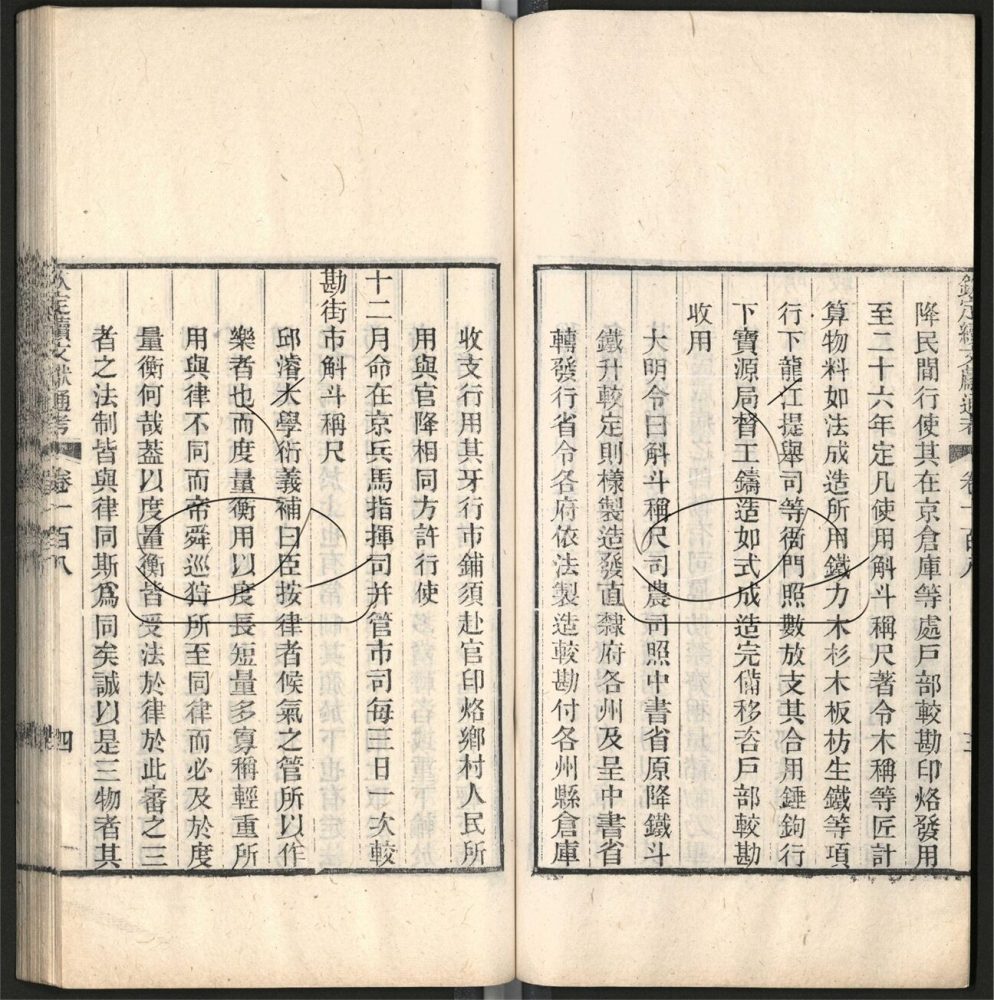 欽定續文獻通考 卷一百八 三
降民間行使其在京倉庫等處戸部較勘印烙發用
至二十六年定凡使用斛斗稱尺著令木稱等匠計
算物料如法成造所用鐵力木杉木板枋生鐵等項
行下龍江提舉司等衙門照數放支其合用錘鉤行
下寶源局督工鑄造如式成造完備移咨戸部較勘
收用
大明令曰斛斗稱尺司農司照中書省原降鐵斗
鐵升較定則樣製造發直隸府各州及呈中書省
轉發行省令各府依法製造較勘付各州縣倉庫
收支行用其牙行市鋪須赴官印烙鄉村人民所
用與官降相同方許行使
十二月命在京兵馬指揮司并管市司每三日一次較
勘街市斛斗稱尺
邱濬大學衍義補曰臣按律者候氣之管所以作
樂者也而度量衡用以度長短量多寡稱輕重所
用與律不同而帝舜巡狩所至同律而必及於度
量衡何哉蓋以度量衡皆受法於律於此審之三
者之法制皆與律同斯爲同矣誠以是三物者其
欽定續文獻通考 卷一百八 四